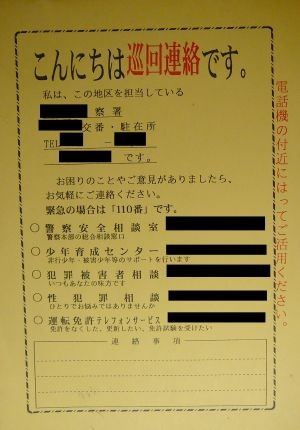 こんにちは巡回連絡です。
私は、この地区を担当している
察署
交番・駐在所
TEL －
です。
お困りのことやご意見がありましたら、
お気軽にご連絡ください。
緊急の場合は「110番」です。
○ 警察安全相談室
警察本部の総合相談窓口
○ 少年育成センター
非行少年・被害少年等のサポートを行います
○ 犯罪被害者相談
いつもあなたの味方です
○ 性犯罪相談
ひとりでお悩みではありませんか
○ 運転免許テレフォンサービス
免許をなくした、更新したい、免許試験を受けたい
連絡事項
電話機の付近にはってご活用ください。